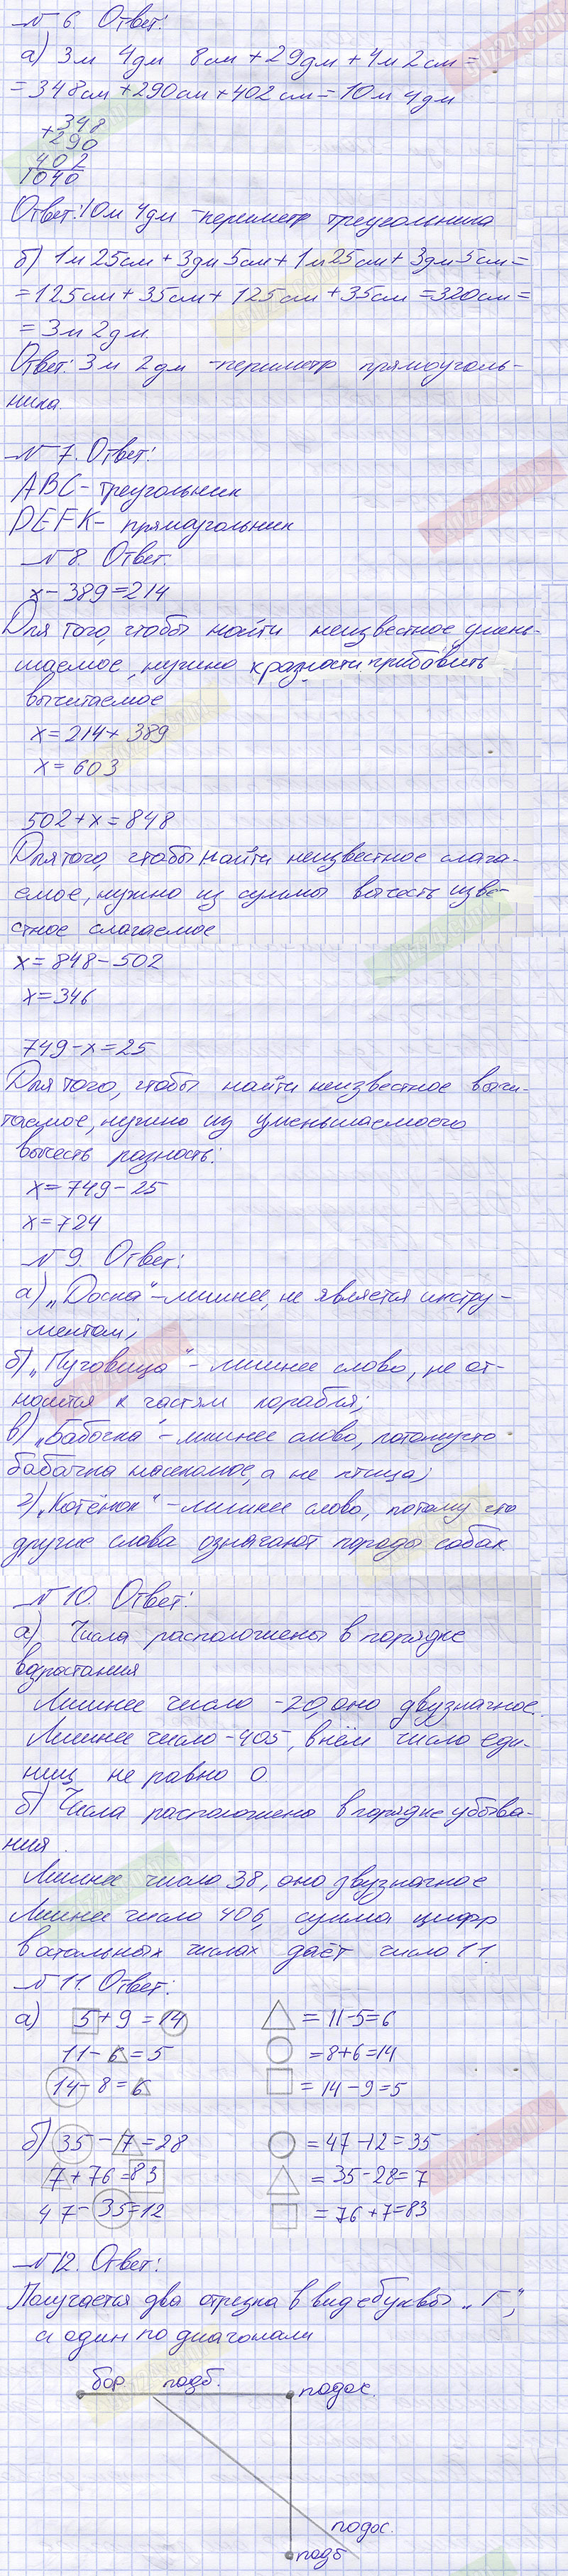 № 6. Ответ:
а) 3м 4дм 8см + 29дм + 4м 2см =
= 348см + 290см + 402см = 10м 4дм
+ 348
290
402
1040
Ответ: 10м 4дм - периметр треугольника
б) 1м 25см + 3дм 5см + 1м 25см + 3дм 5см =
= 125см + 35см + 125см + 35см = 320см =
= 3м 2дм.
Ответ: 3м 2дм - периметр прямоуголь-
ника.
№ 7. Ответ:
ABC - треугольник
DEFK - прямоугольник
№ 8. Ответ.
x - 389 = 214
Для того, чтобы найти неизвестное умень-
шаемое, нужно к разности прибавить
вычитаемое
x = 214 + 389
x = 603
502 + x = 848
Для того, чтобы найти неизвестное слага-
емое, нужно из суммы вычесть изве-
стное слагаемое
x = 848 - 502
x = 346
749 - x = 25
Для того, чтобы найти неизвестное вычи-
таемое, нужно из уменьшаемого
вычесть разность:
x = 749 - 25
x = 724
№ 9. Ответ:
а) „Доска" - лишнее, не является инстру-
ментом;
б) „Пуговица" - лишнее слово, не от-
носится к частям корабля;
в) „Бабочка" - лишнее слово, потомучто
бабочка насекомое, а не птица;
г) „Котёнок" - лишнее слово, потому что
другие слова означают породы собак.
№ 10. Ответ:
а) Числа расположены в порядке
возрастания
Лишнее число - 20, оно двузначное.
Лишнее число - 405, в нём число еди-
ниц не равно 0
б) Числа расположено в порядке убыва-
ния.
Лишнее число 38, оно двузначное
Лишнее число 406, сумма цифр
в остальных числах даёт число 11.
№ 11. Ответ:
а) 5 + 9 = 14 = 11 - 5 = 6
11 - 6 = 5 = 8 + 6 = 14
14 - 8 = 6 = 14 - 9 = 5
б) 35 - 7 = 28 = 47 - 12 = 35
7 + 76 = 83 = 35 - 28 = 7
47 - 35 = 12 = 76 + 7 = 83
№ 12. Ответ:
Получается два отрезка в виде буквы „Г",
а один по диагонали
бор подб. подос.
подос.
подб